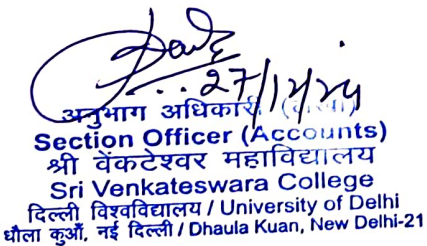 27/12/24
अनुभाग अधिकारी (लेखा)
Section Officer (Accounts)
श्री वेंकटेश्वर महाविद्यालय
Sri Venkateswara College
दिल्ली विश्वविद्यालय / University of Delhi
धौला कुआँ, नई दिल्ली / Dhaula Kuan, New Delhi-21